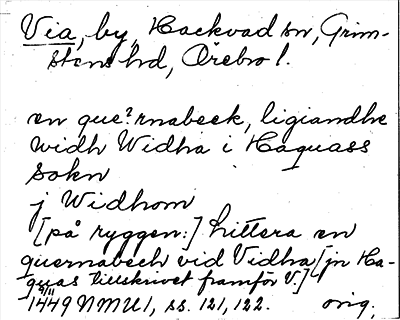 Via, by, Hackvad sn, Grim-
stens hd, Örebro l.
en que?rnabeck, ligiandhe
widh Widha i Haquass
sokn
j Widhom
[på ryggen:] littera en
quernabech vid Vidha [jn Ha-
quas tillskrivet framför V.]
14/11
1449 NMU 1, ss. 121, 122. orig.